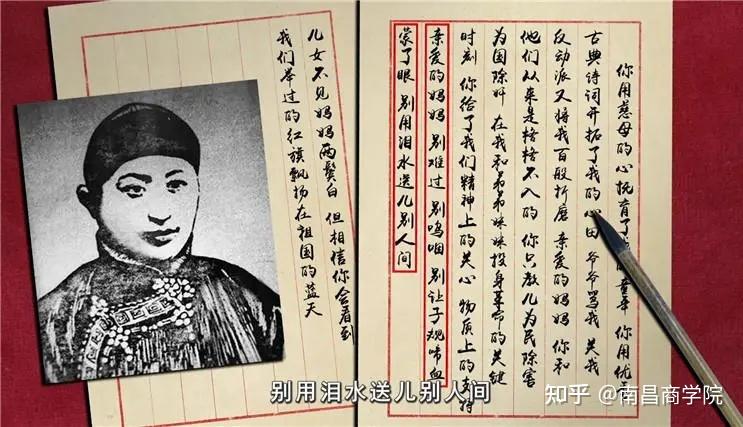 你用慈母的心抚育了的童年 你用优
古典诗词开拓了我的心田 爷爷骂我 关我
反动派又将我百般折磨 亲爱的妈妈 你和
他们从来是格格不入的 你只教儿为民除害
为国除奸 在我和弟弟妹妹投身革命的关键
时刻 你给了我们精神上的关心 物质上的支持
亲爱的妈妈 别难过 别呜咽 别让子规啼血
蒙了眼 别用泪水送儿别人间
儿女不见妈妈两鬓白 但相信你会看到
我们举过的红旗飘扬在祖国的蓝天
别用泪水送儿别人间
知乎 @南昌商学院